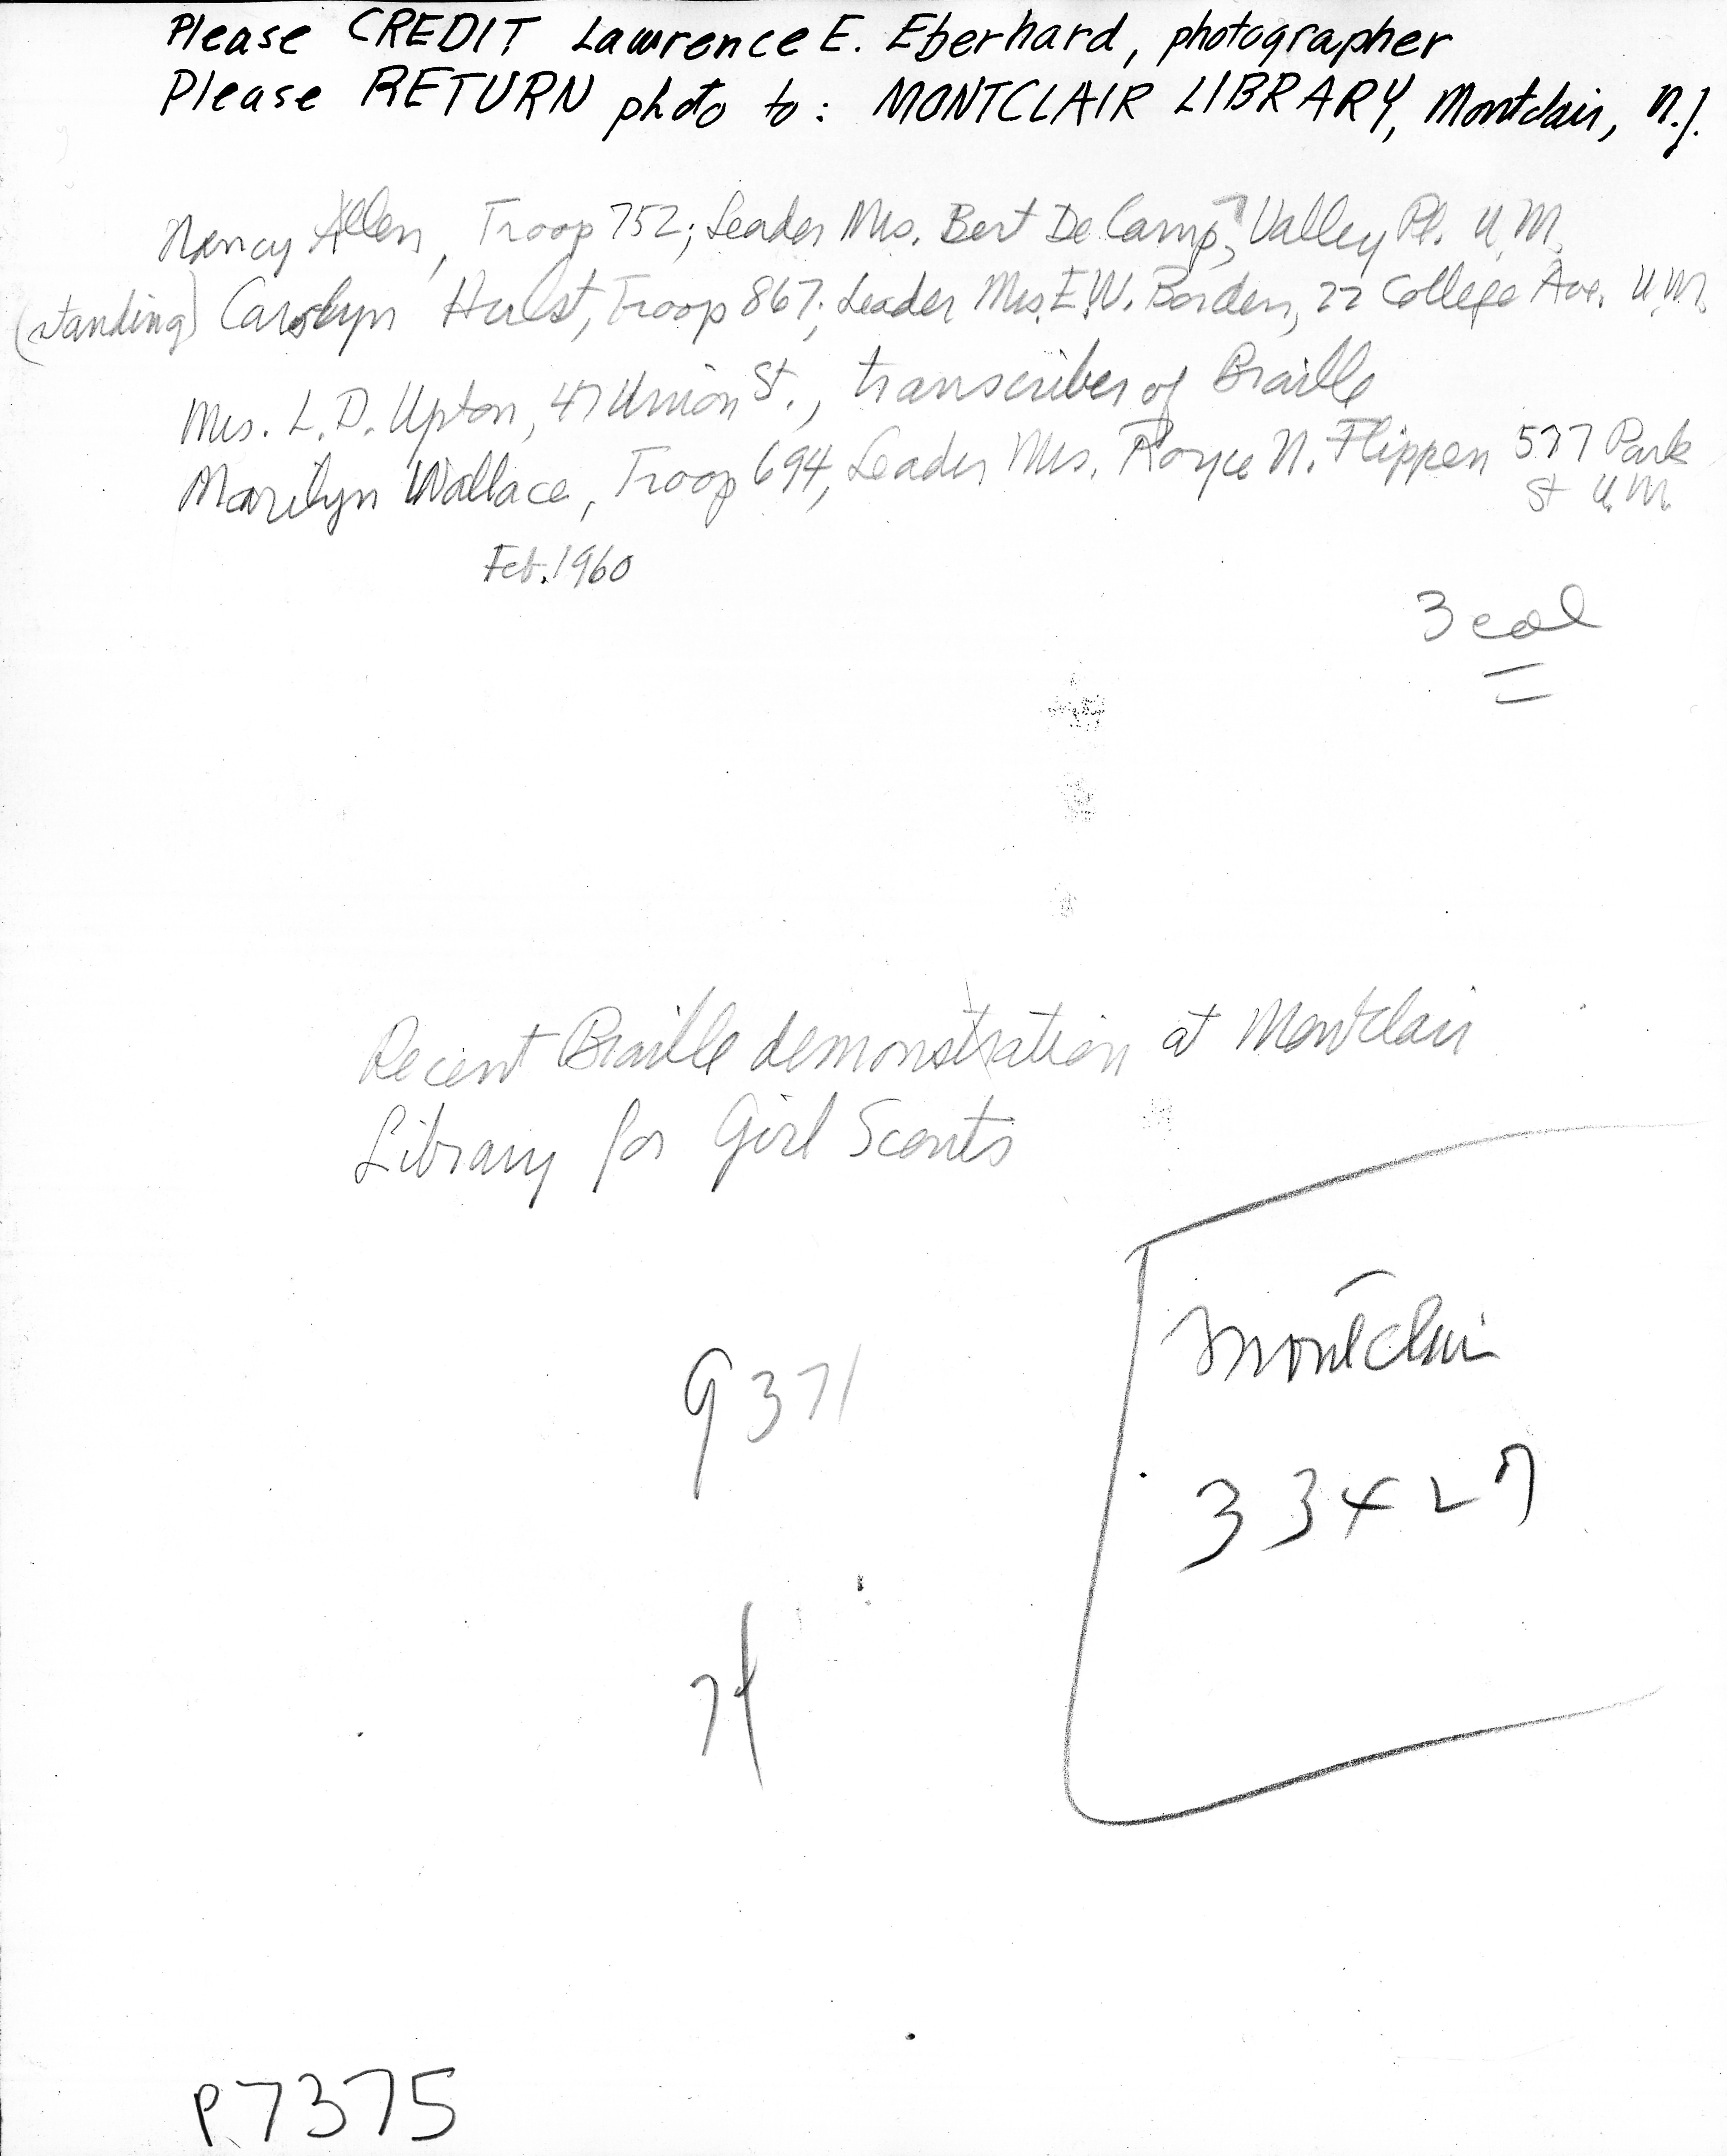 Please CREDIT Lawrence E. Eberhard, photographer
Please RETURN photo to: MONTCLAIR LIBRARY, Montclair, N.J.
Nancy Allen, Troop 752; Leader Mrs. Bert De Camp, 7 Valley Pl. U.M.
(standing) Carolyn Hulst, Troop 867; Leader Mrs. E.W. Borden, 22 College Ave. U.M.
Mrs. L.D. Upton, 47 Union St., transcriber of Braille
Marilyn Wallace, Troop 694, Leader Mrs. Royce N. Flippen 577 Park
St U.M.
Feb. 1960
3 col
Recent Braille demonstration at Montclair
Library for Girl Scouts
9371
Montclair
33427
P7375